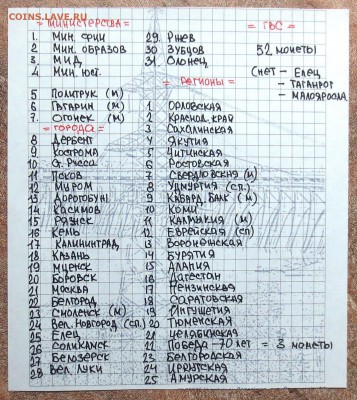 COINS.SU.RU
= МИНИСТЕРСТВА =
1. Мин. фин
2. Мин. образов
3. МИД
4 Мин. юст.
5 Политрук (м)
6 Гагарин (м)
7. Огонек (м)
= ГОРОДА =
8 Дербент
9 Кострома
10 Ст. Русса
11 Псков
12 Муром
13 Дорогобуж
14 Касимов
15 Ряжск
16 Кемь
17 Калининград
18 Казань
19 Мценск
20 Боровск
21 Москва
22 Белгород
23 Смоленск (м)
24 Вел. Новгород (сп)
25 Елец
26 Соликамск
27 Белозерск
28 Вел. Луки
29. Ржев
30 Зубцов
31 Олонец
= РЕГИОНЫ =
1 Орловская
2 Краснод. край
3 Сахалинская
4 Якутия
5 Читинская
6 Ростовская
7 Свердловская (м)
8 Удмуртия (сп.)
9 Кабард. Балк (м)
10 Коми
11 Калмыкия (м)
12 Еврейская (сп)
13 Воронежская
14 Бурятия
15 Алания
16 Дагестан
17 Пензинская
18 Саратовская
19 Ингушетия
20 Тюменская
21 Челябинская
Победа -70 лет = 3 монеты
23 Белгородская
24 Иркутская
25 Амурская
= ГВС =
52 монеты
(нет - Елец
- Таганрог
- Малоярослав